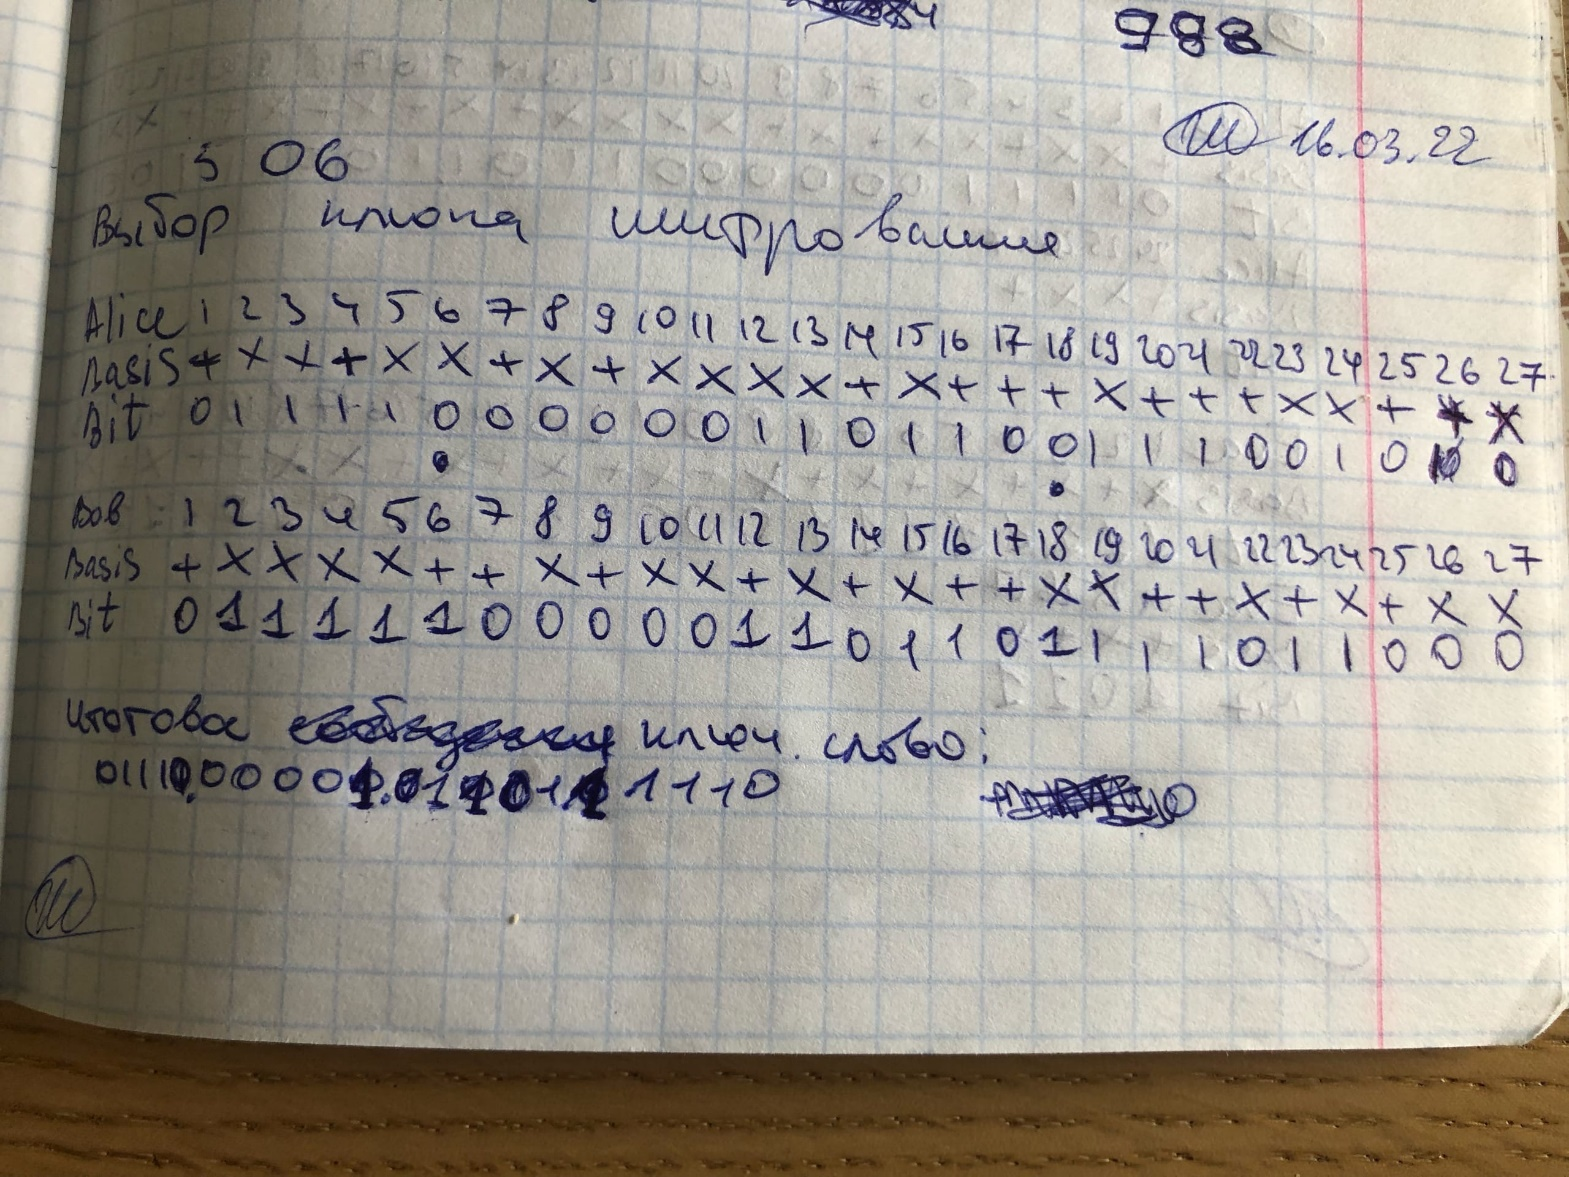 988
16.03.22
5 06
Выбор ключа шифрования
Alice 1 2 3 4 5 6 7 8 9 10 11 12 13 14 15 16 17 18 19 20 21 22 23 24 25 26 27
Basis + × × + × × + × + × × × × + × + + + × + + + × × + + ×
Bit 0 1 1 1 1 0 0 0 0 0 0 1 1 0 1 1 0 0 1 1 1 0 0 1 0 0
Bob : 1 2 3 4 5 6 7 8 9 10 11 12 13 14 15 16 17 18 19 20 21 22 23 24 25 26 27
Basis + × × × × + + × + × × + × + × + + × × + + × + × + × ×
Bit 0 1 1 1 1 1 0 0 0 0 0 1 1 0 1 1 0 1 1 1 1 0 1 1 0 0 0
Итоговое ключ. слово: